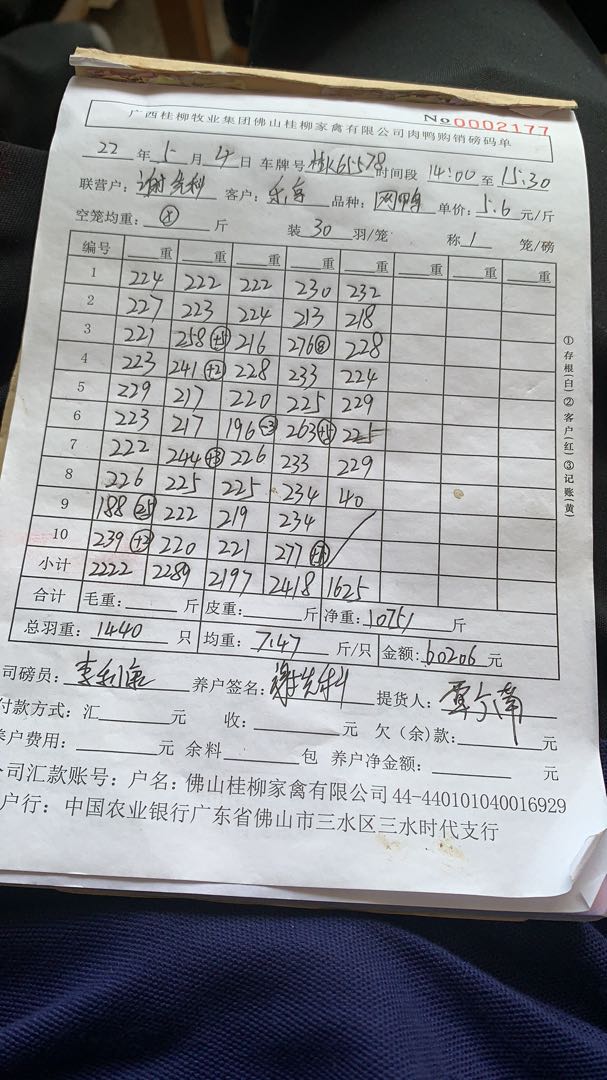 No 0002177
广西桂柳牧业集团佛山桂柳家禽有限公司肉鸭购销磅码单
22 年 5 月 4 日 车牌号 桂K65578 时间段 14:00 至 15:30
联营户: 谢先科 客户: 品种: 网鸭 单价: 5.6 元/斤
空笼均重: 斤 装 30 羽/笼 称 1 笼/磅
编号 重 重 重 重 重 重 重 重
1 224 222 222 230 232
2 227 223 224 213 218
3 221 258 216 276 ⑧ 228
4 223 241 (+2) 228 233 224
5 229 217 220 225 229
6 223 217 196 (-3) 263 (+5) 225
7 222 244 (+3) 226 233 229
8 226 225 225 234 40
9 188 222 219 234
10 239 (+2) 220 221 277
小计 2222 2289 2197 2418 1625
合计 毛重: 斤 皮重: 斤 净重: 10751 斤
总羽重: 1440 只 均重: 7.47 斤/只 金额: 60206 元
司磅员: 养户签名: 谢先科 提货人:
付款方式: 汇 元 收: 元 欠(余)款: 元
养户费用: 元 余料 包 养户净金额: 元
公司汇款账号: 户名: 佛山桂柳家禽有限公司 44-440101040016929
户行: 中国农业银行广东省佛山市三水区三水时代支行
①存根(白)②客户(红)③记账(黄)